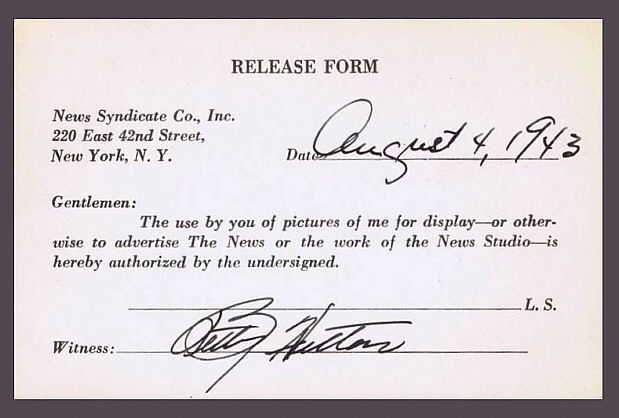 RELEASE FORM
News Syndicate Co., Inc.
220 East 42nd Street,
New York, N. Y.
Date August 4, 1943
Gentlemen:
The use by you of pictures of me for display—or other-
wise to advertise The News or the work of the News Studio—is
hereby authorized by the undersigned.
L. S.
Witness: Betty Hutton